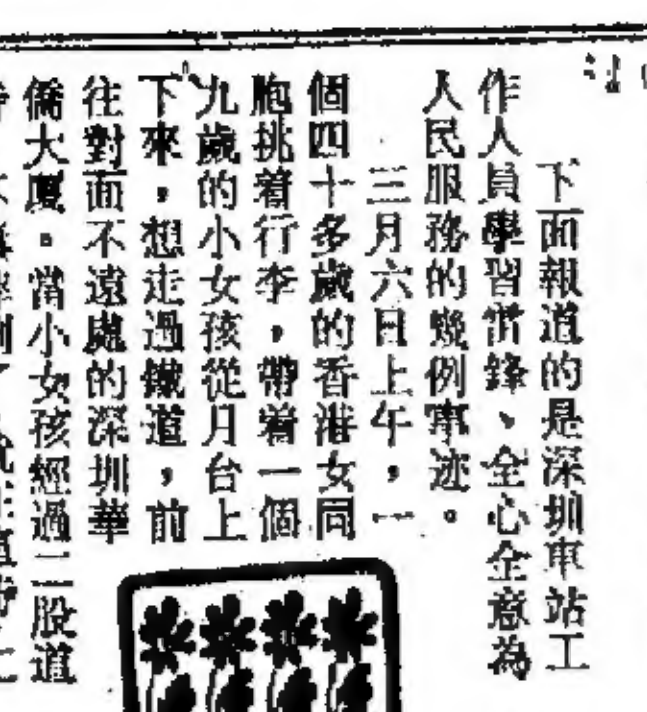 下面報道的是深圳車站工
作人員學習雷鋒、全心全意為
人民服務的幾例事迹。
三月六日上午，一
個四十多歲的香港女同
胞挑着行李，帶着一個
九歲的小女孩從月台上
下來，想走過鐵道，前
往對面不遠處的深圳華
僑大廈。當小女孩經過二股道